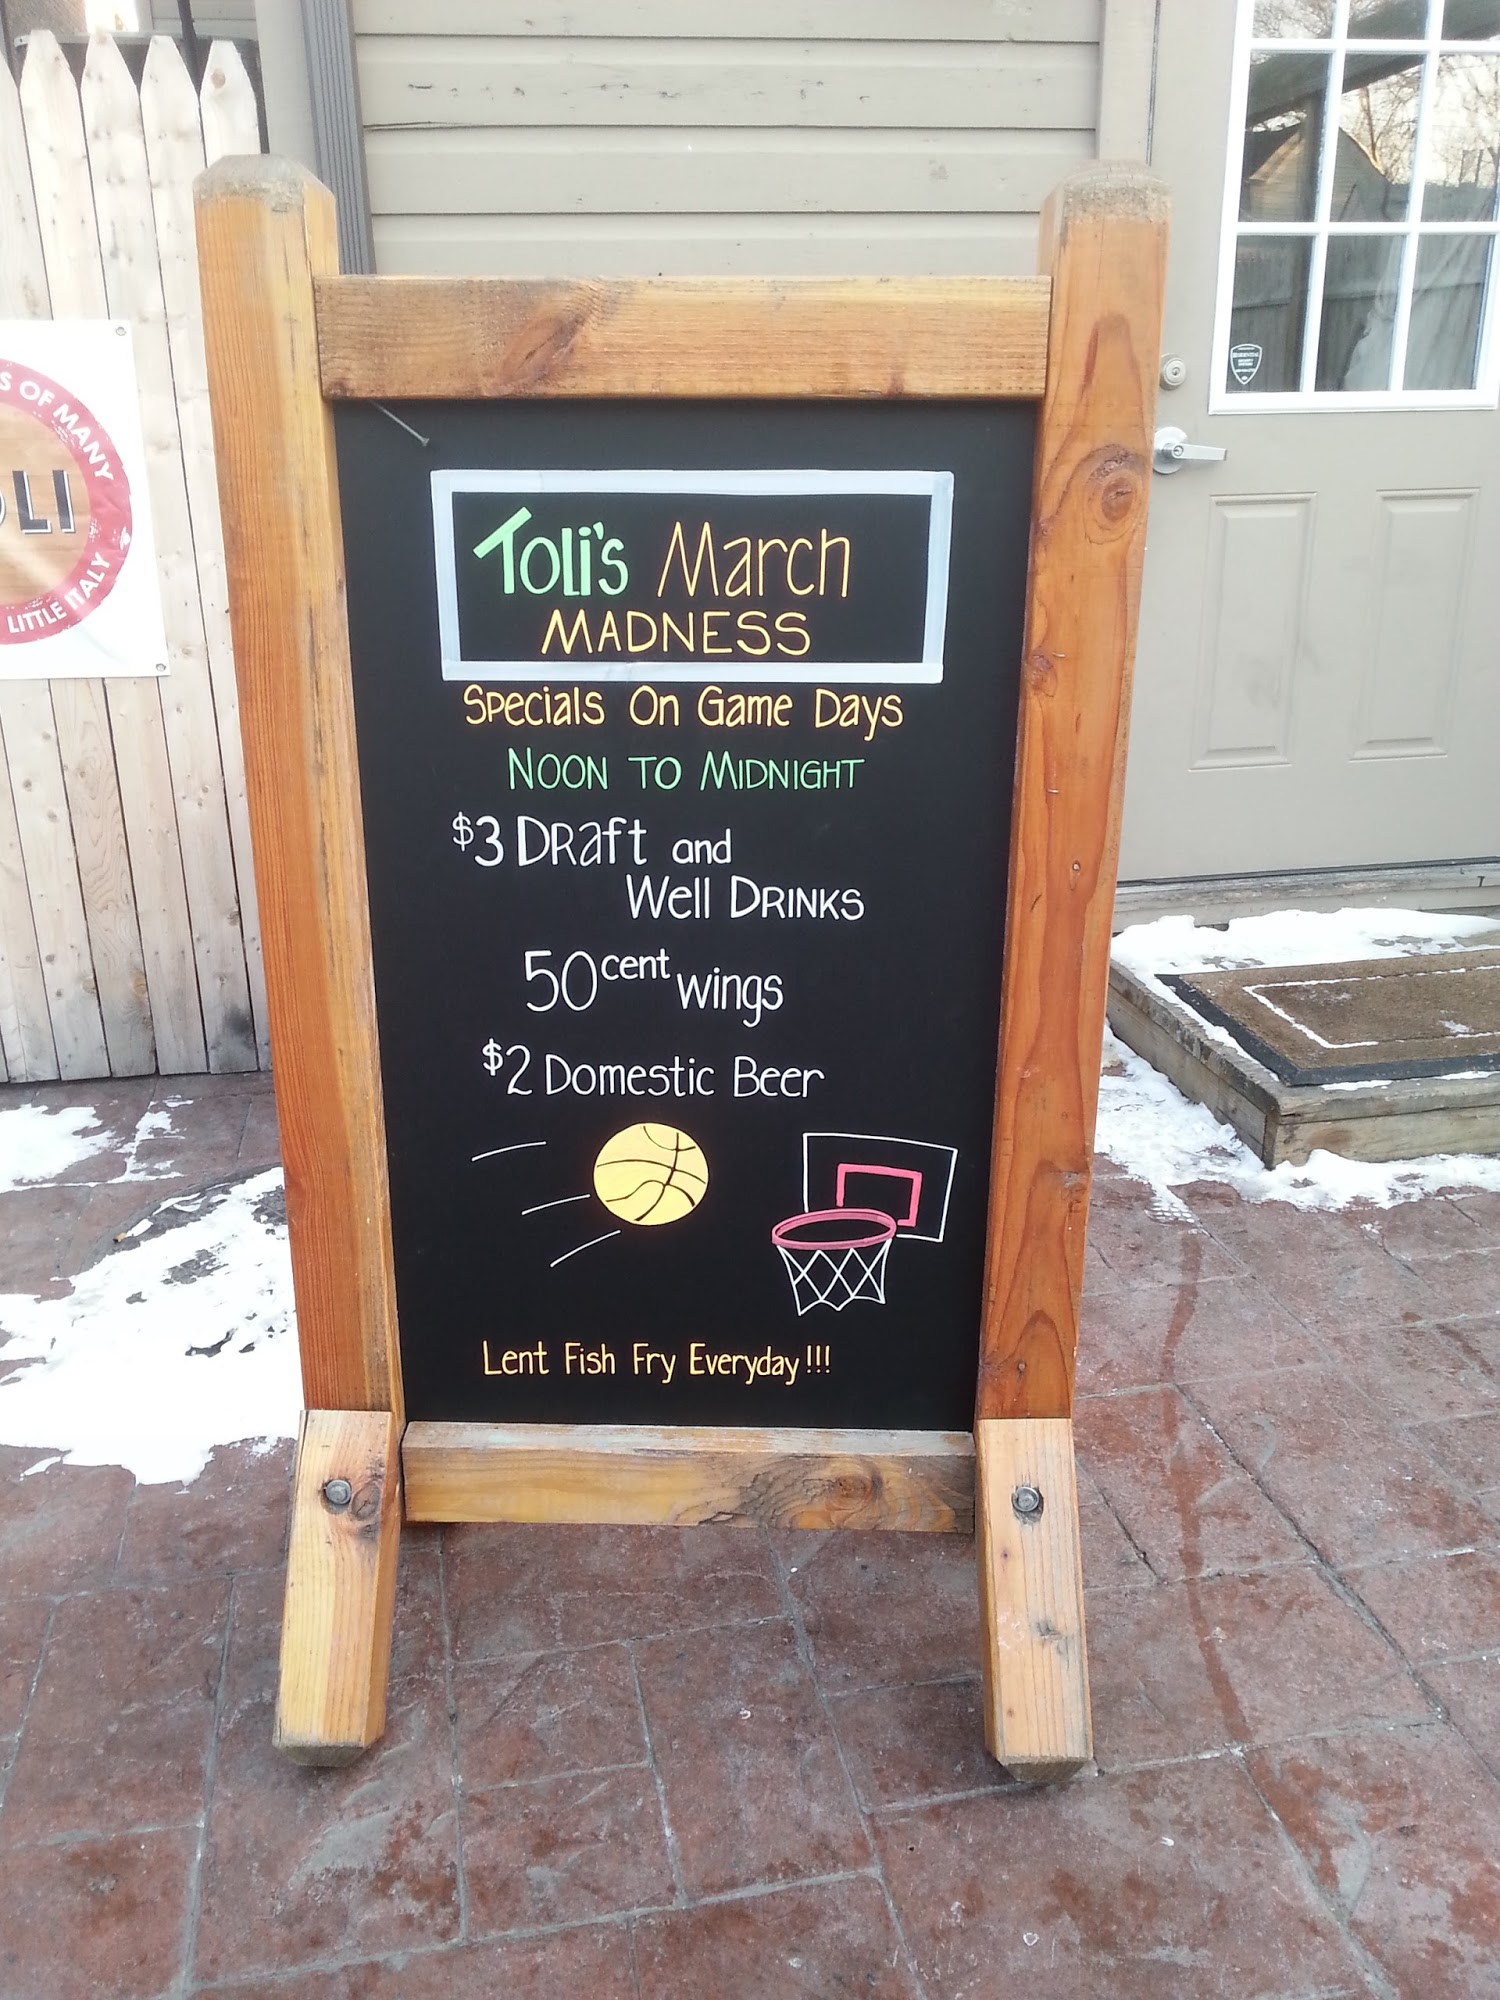 Toli's March
MADNESS
Specials On Game Days
NOON TO MIDNIGHT
$3 Draft and
Well DRINKS
50 cent wings
$2 Domestic Beer
Lent Fish Fry Everyday!!!
S OF MANY
OLI
LITTLE ITALY